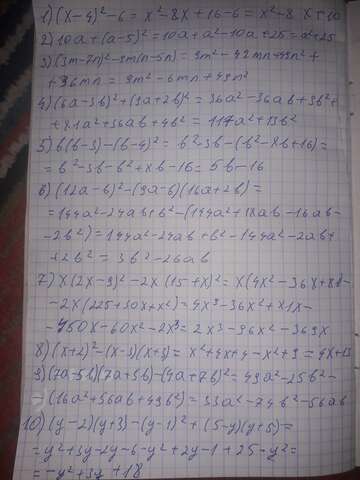 1) (x-4)²-6 = x²-8x+16-6 = x²-8x+10
2) 10a+(a-5)² = 10a+a²-10a+25 = a²+25
3) (3m-7n)²-9m(n-5n) = 9m²-42mn+49n²+
+36mn = 9m²-6mn+49n²
4) (6a-3b)²+(9a+2b)² = 36a²-36ab+9b²+
+81a²+36ab+4b² = 117a²+13b²
5) b(b-3)-(b-4)² = b²-3b-(b²-8b+16) =
= b²-3b-b²+8b-16 = 5b-16
6) (12a-b)²-(9a-b)(16a+2b) =
= 144a²-24ab+b²-(144a²+18ab-16ab-
-2b²) = 144a²-24ab+b²-144a²-2ab+
+2b² = 3b²-26ab
7) x(2x-9)²-2x(15+x)² = x(4x²-36x+81)-
-2x(225+30x+x²) = 4x³-36x²+81x-
-450x-60x²-2x³ = 2x³-96x²-369x
8) (x+2)²-(x-3)(x+3) = x²+4x+4-x²+9 = 4x+13
9) (7a-5b)(7a+5b)-(4a+7b)² = 49a²-25b²-
-(16a²+56ab+49b²) = 33a²-74b²-56ab
10) (y-2)(y+3)-(y-1)²+(5-y)(y+5) =
= y²+3y-2y-6-y²+2y-1+25-y² =
= -y²+3y+18